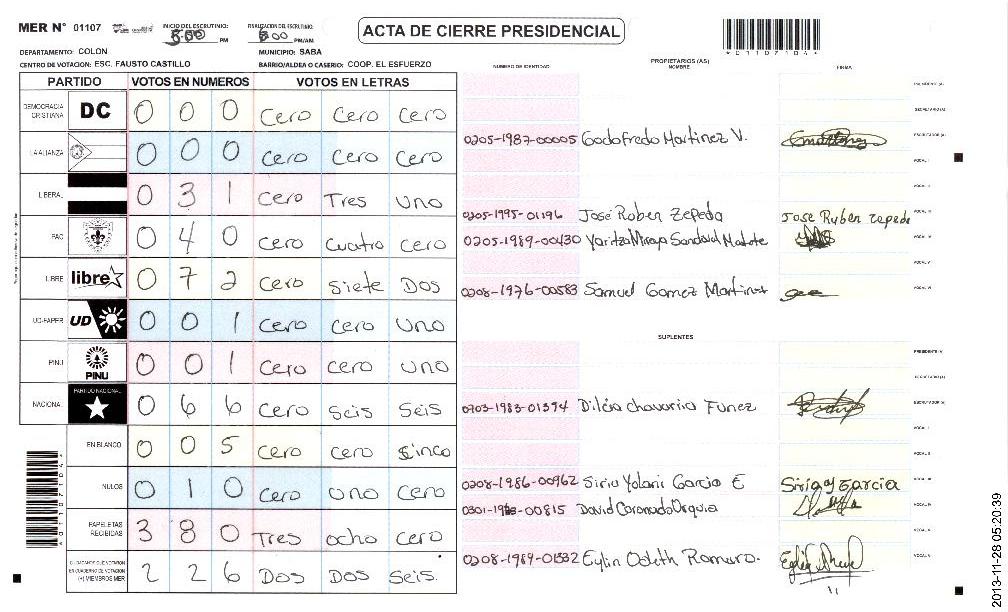 MER N° 01107 INICIO DEL ESCRUTINIO: 5:00 PM FINALIZACION DEL ESCRUTINIO: 8:00 PM/AM
ACTA DE CIERRE PRESIDENCIAL
*01107104*
DEPARTAMENTO: COLON MUNICIPIO: SABA
CENTRO DE VOTACION: ESC. FAUSTO CASTILLO BARRIO/ALDEA O CASERIO: COOP. EL ESFUERZO
PARTIDO VOTOS EN NUMEROS VOTOS EN LETRAS
DEMOCRACIA CRISTIANA DC 0 0 0 Cero Cero Cero
LA ALIANZA 0 0 0 Cero Cero Cero
LIBERAL 0 3 1 Cero Tres uno
PAC 0 4 0 Cero Cuatro cero
LIBRE libre 0 7 2 Cero Siete Dos
UD-FAPER UD 0 0 1 Cero cero uno
PINU PINU 0 0 1 Cero cero uno
NACIONAL PARTIDO NACIONAL 0 6 6 Cero Seis Seis
EN BLANCO 0 0 5 Cero cero Sinco
NULOS 0 1 0 Cero uno Cero
PAPELETAS RECIBIDAS 3 8 0 Tres ocho cero
CIUDADANOS QUE VOTARON EN CUADERNO DE VOTACION (+) MIEMBROS MER 2 2 6 Dos Dos Seis.
PROPIETARIOS (AS)
NUMERO DE IDENTIDAD NOMBRE FIRMA
PRESIDENTE (A)
SECRETARIO (A)
0205-1987-00005 Godofredo Martinez V. ESCRUTADOR (A)
VOCAL I
VOCAL II
0205-1995-01196 José Ruben Zepeda Jose Ruben zepeda VOCAL III
0205-1989-00430 Yaritza Sandoval VOCAL IV
VOCAL V
0208-1976-00583 Samuel Gomez Martinez VOCAL VI
SUPLENTES
PRESIDENTE (A)
SECRETARIO (A)
0703-1983-01374 Dilcia chavarria Funez ESCRUTADOR (A)
VOCAL I
VOCAL II
0208-1986-00962 Siria Yolani Garcia E Siria y Garcia VOCAL III
David Coronado Urquia VOCAL IV
VOCAL V
Eylin Odeth Romero. VOCAL VI
2013-11-28 05:20:39